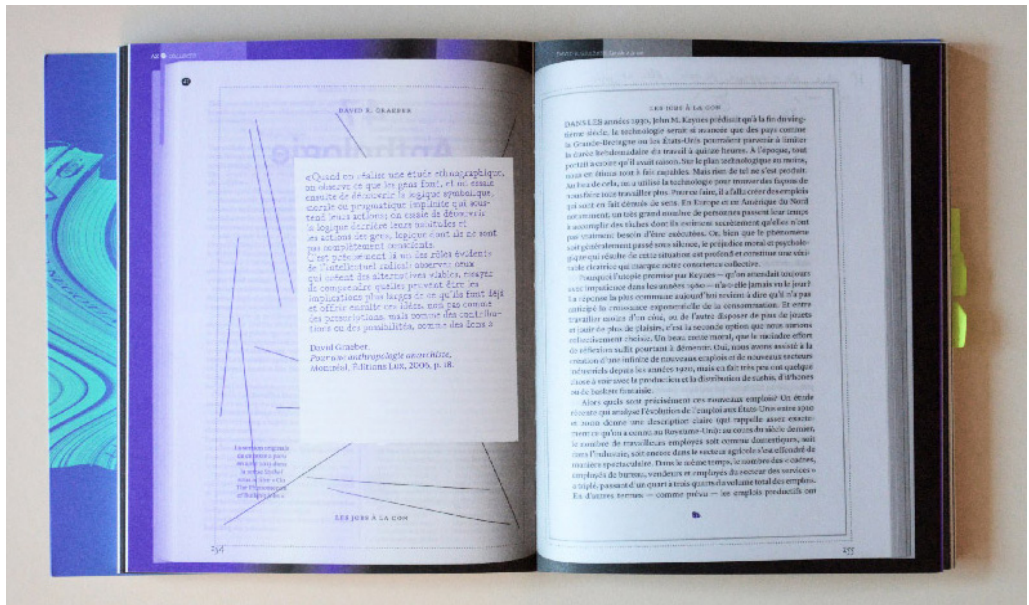 DAVID R. GRAEBER
Anthologie
«Quand on réalise une étude ethnographique,
on observe ce que les gens font, et on essaie
ensuite de découvrir la logique symbolique,
morale ou pragmatique implicite qui sous-
tend leurs actions; on essaie de découvrir
la logique derrière leurs habitudes et
les actions des gens, logique dont ils ne sont
pas complètement conscients.
C'est précisément là un des rôles évidents
de l'intellectuel radical: observer ceux
qui créent des alternatives viables, essayer
de comprendre quelles peuvent être les
implications plus larges de ce qu'ils font déjà
et offrir ensuite ces idées, non pas comme
des prescriptions, mais comme des contribu-
tions ou des possibilités, comme des dons.»
David Graeber,
Pour une anthropologie anarchiste,
Montréal, Éditions Lux, 2006, p. 18.
LES JOBS À LA CON
234
LES JOBS À LA CON
DANS LES années 1930, John M. Keynes prédisait qu'à la fin du ving-
tième siècle, la technologie serait si avancée que des pays comme
la Grande-Bretagne ou les États-Unis pourraient parvenir à limiter
la durée hebdomadaire du travail à quinze heures. À l'époque, tout
portait à croire qu'il avait raison. Sur le plan technologique au moins,
nous en étions tout à fait capables. Mais rien de tel ne s'est produit.
Au lieu de cela, on a utilisé la technologie pour trouver des façons de
nous faire tous travailler plus. Pour ce faire, il a fallu créer des emplois
qui sont en fait dénués de sens. En Europe et en Amérique du Nord
notamment, un très grand nombre de personnes passent leur temps
à accomplir des tâches dont ils estiment secrètement qu'elles n'ont
pas vraiment besoin d'être exécutées. Or, bien que le phénomène
soit généralement passé sous silence, le préjudice moral et psycholo-
gique qui résulte de cette situation est profond et constitue une véri-
table cicatrice qui marque notre conscience collective.
Pourquoi l'utopie promise par Keynes – qu'on attendait toujours
avec impatience dans les années 1960 – n'a-t-elle jamais vu le jour?
La réponse la plus commune aujourd'hui revient à dire qu'il n'a pas
anticipé la croissance exponentielle de la consommation. Et entre
travailler moins d'un côté, ou de l'autre disposer de plus de jouets
et jouir de plus de plaisirs, c'est la seconde option que nous aurions
collectivement choisie. Un beau conte moral, que le moindre effort
de réflexion suffit pourtant à démentir. Oui, nous avons assisté à la
création d'une infinité de nouveaux emplois et de nouveaux secteurs
industriels depuis les années 1920, mais en fait très peu ont quelque
chose à voir avec la production et la distribution de sushis, d'iPhones
ou de baskets fantaisie.
Alors quels sont précisément ces nouveaux emplois? Un étude
récente qui analyse l'évolution de l'emploi aux États-Unis entre 1910
et 2000 donne une description claire (qui rappelle assez exacte-
ment ce qu'on a connu au Royaume-Uni): au cours du siècle dernier,
le nombre de travailleurs employés soit comme domestiques, soit
dans l'industrie, soit encore dans le secteur agricole s'est effondré de
manière spectaculaire. Dans le même temps, le nombre des « cadres,
employés de bureau, vendeurs et employés du secteur des services »
a triplé, passant d'un quart à trois quarts du volume total des emplois.
En d'autres termes – comme prévu – les emplois productifs ont
235